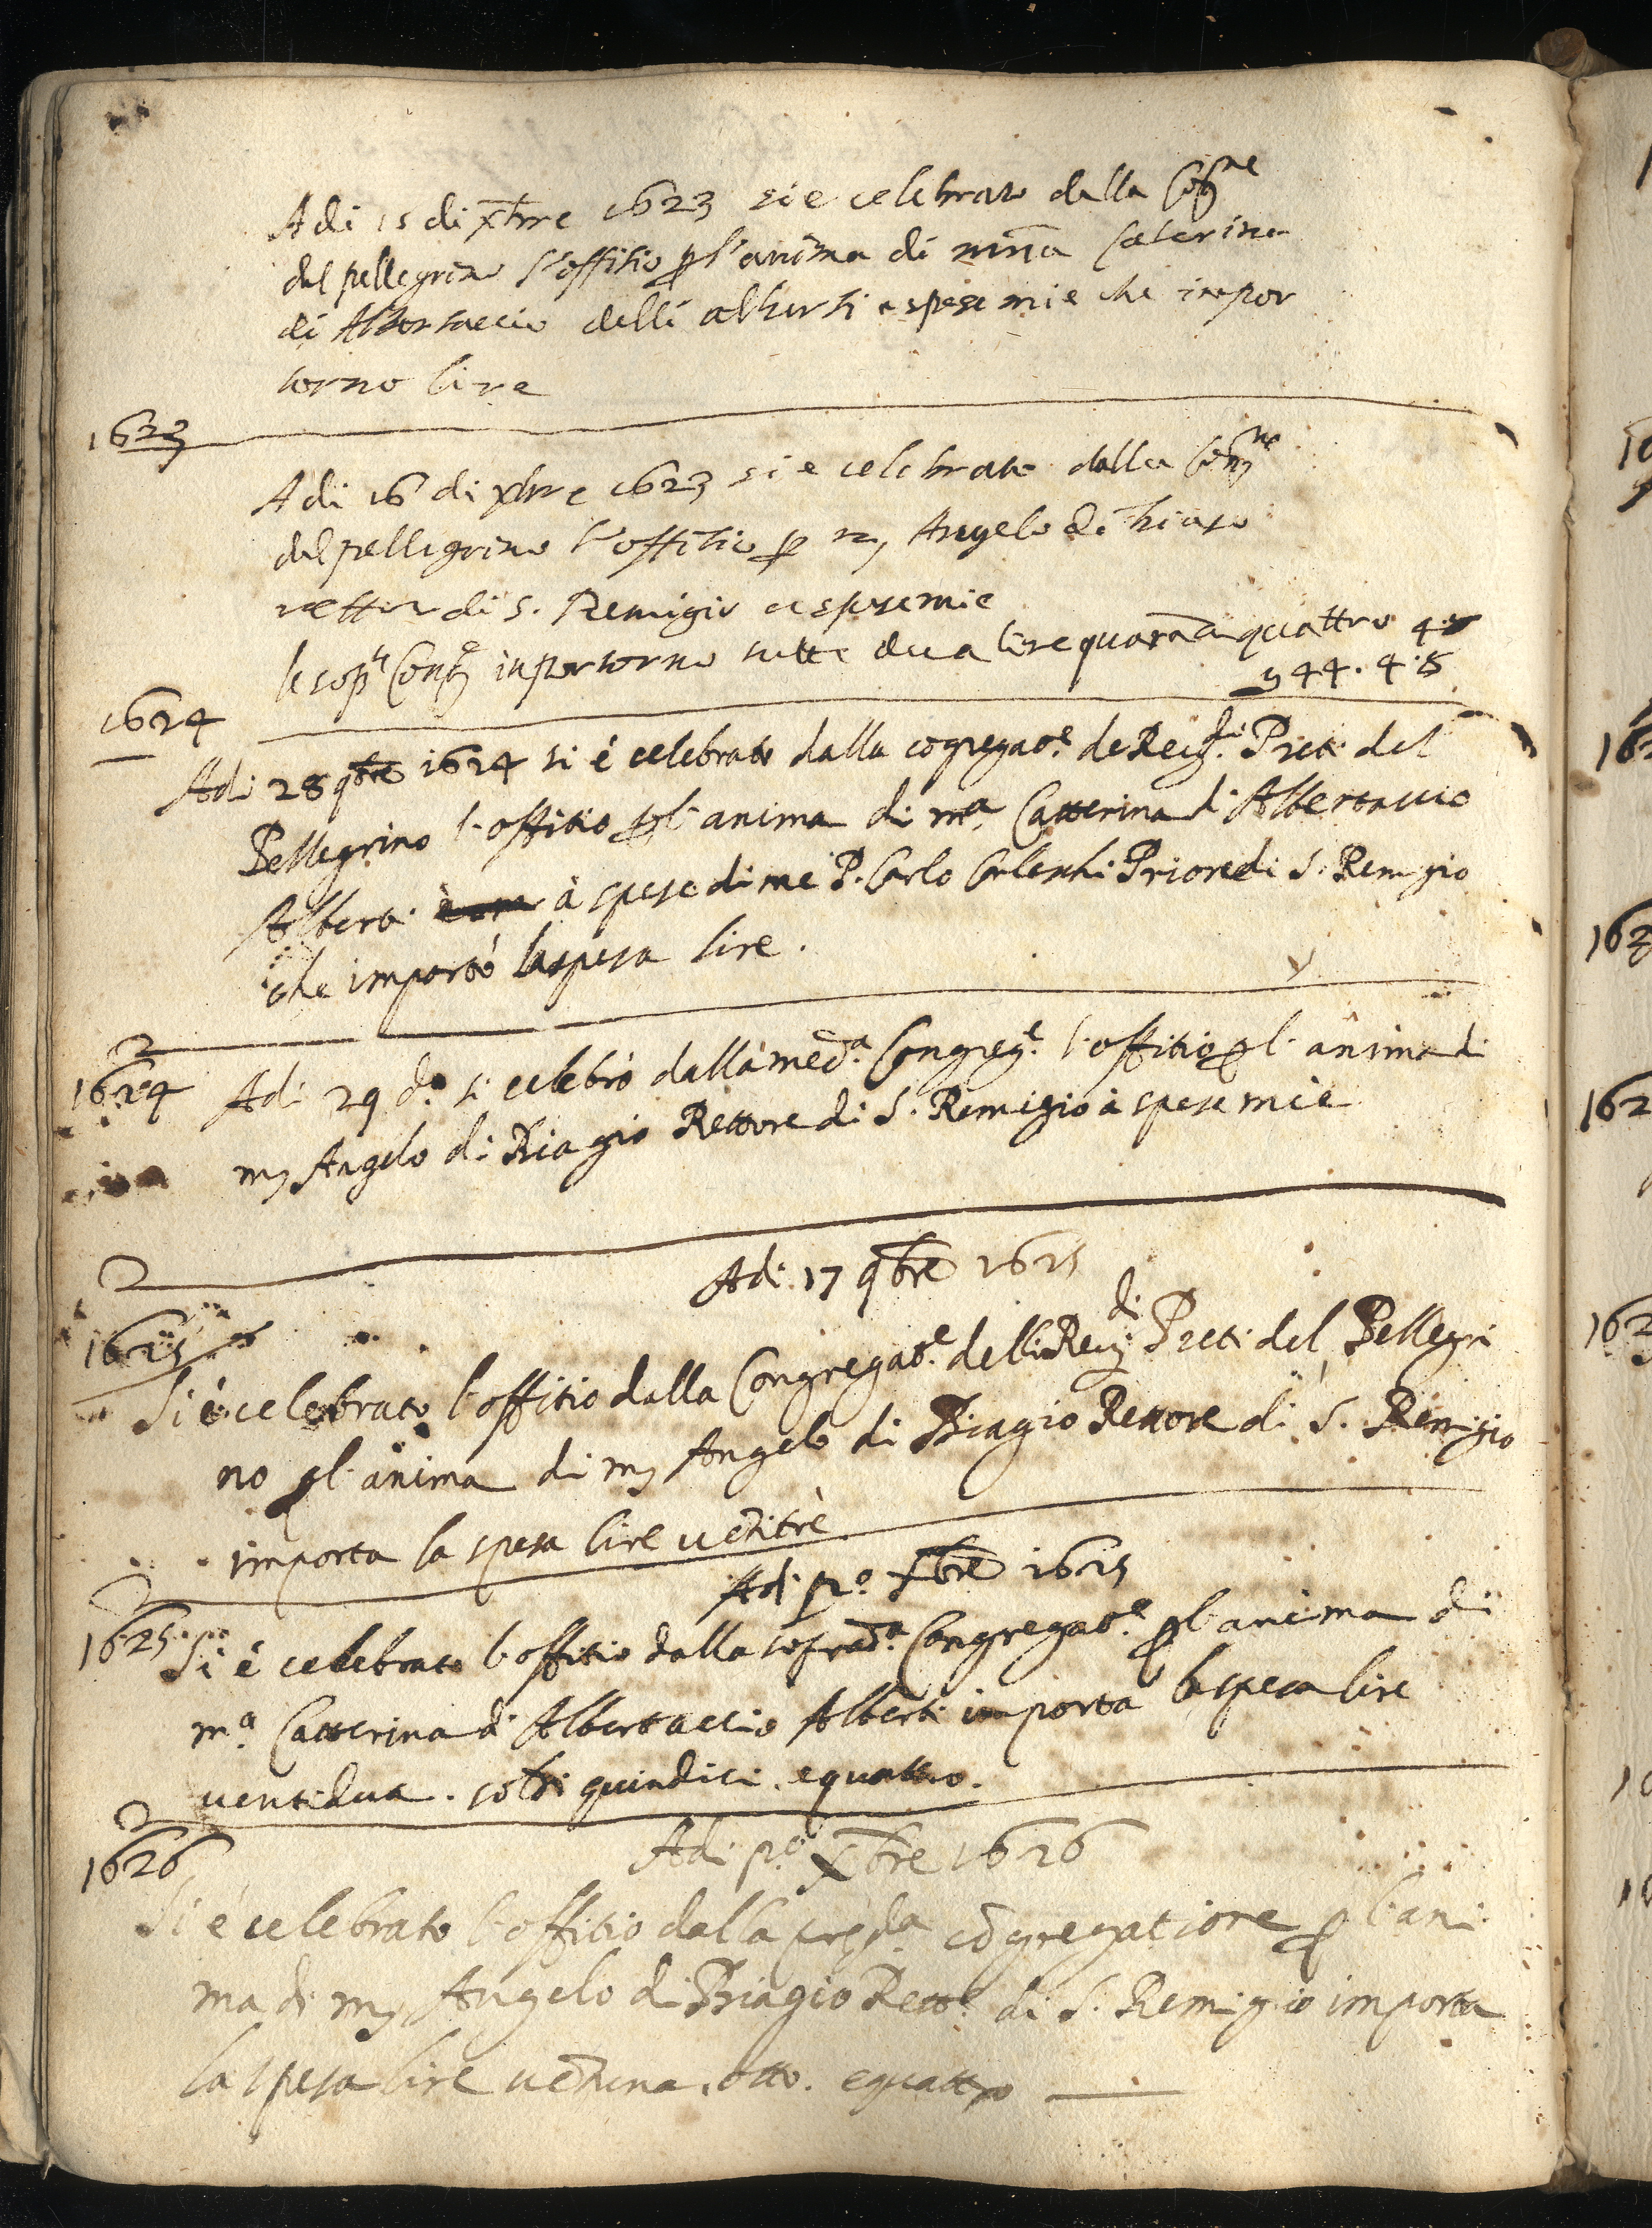 Adi 15 di xbre 1623 si e celebrato dalla Cong.ne
del pellegrino l'offitio p l'anima di mna Caterina
di Albertaccio delli alberti a spese mie che inpor
torno lire
1623
Adi 16 di xbre 1623 si e celebrato dalla Cong.ne
del pellegrino l'offitio p m, Angelo di biaso
rettor di S. Remigio a spese mie
le sop.te Cong.e inportorno tutte dua lire quaranta quattro 4.8
44.4.8
1624
Adi 28 9bre 1624 si é celebrato dalla cogregat.e de Reu.di Preti del
Pellegrino l'offitio p l'anima di m.a Catterina di Albertaccio
Alberti à spese di me P. Carlo Priore di S. Remigio
che importò la spesa lire.
1624
Adi 29 d.o si celebrò dalla med.a Congreg.e l'offitio p l'anima di
m, Angelo di Biagio Rettore di S. Remigio à spese mie
Adi 17 9bre 1625
1625
Si é celebrato l'offitio dalla Congregat.e delli Reu.di Preti del Pellegri
no p l'anima di m, Angelo di Biagio Rettore di S. Remigio
importa la spesa lire uētitrè
Adi p.o xbre 1625
1625
Si é celebrato l'offitio dalla soprad.a Congregat.e p l'anima di
m.a Catterina di Albertaccio Alberti importa la spesa lire
uentidua. soldi quindici. e quattro.
1626
Adi p.o xbre 1626
Si é celebrato l'offitio dalla pred.a cōgregatione p l'ani
ma di m, Angelo di Biagio Rett.e di S. Remigio importa
la spesa lire uētuna. otto. e quattro